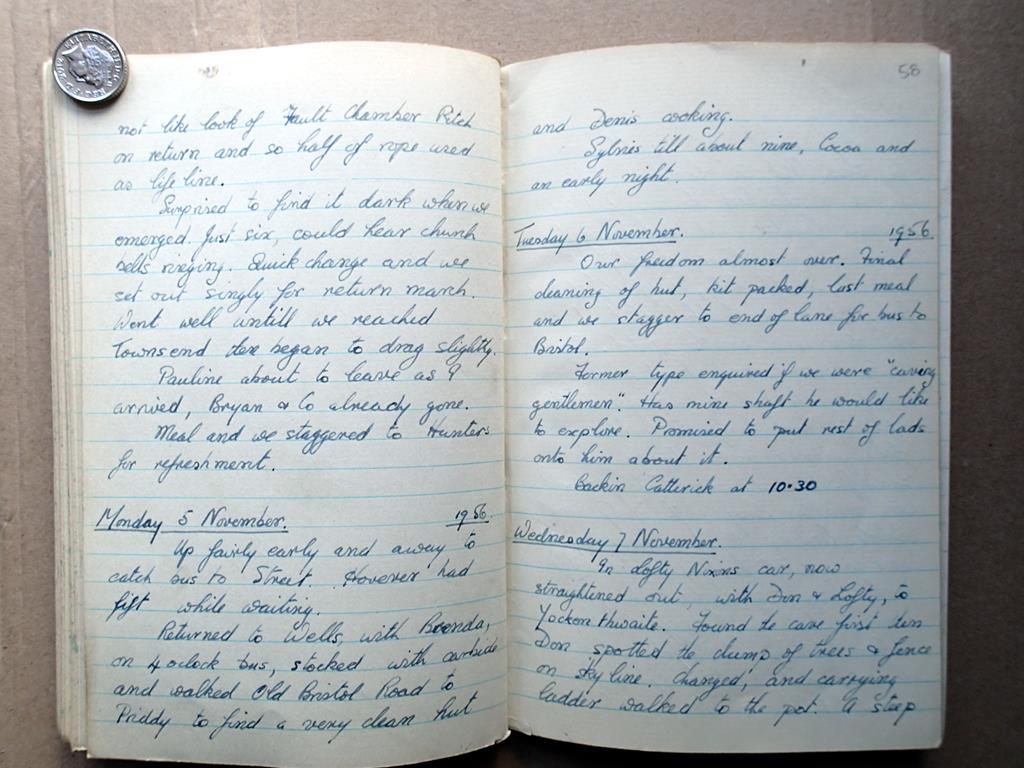 not like look of Fault Chamber Pitch
on return and so half of rope used
as life line.
Surprised to find it dark when we
emerged. Just six, could hear church
bells ringing. Quick change and we
set out singly for return march.
Went well untill we reached
Townsend then began to drag slightly.
Pauline about to leave as I
arrived, Bryan & Co already gone.
Meal and we staggered to Hunters
for refreshment.
Monday 5 November. 1956.
Up fairly early and away to
catch bus to Street. However had
lift while waiting.
Returned to Wells, with Brenda,
on 4 oclock bus, stocked with carbide
and walked Old Bristol Road to
Priddy to find a very clean hut
58
and Denis cooking.
till about nine, Cocoa and
an early night.
Tuesday 6 November. 1956.
Our freedom almost over. Final
cleaning of hut, kit packed, last meal
and we stagger to end of lane for bus to
Bristol.
Farmer type enquired if we were "caving
gentlemen". Has mine shaft he would like
to explore. Promised to put rest of lads
onto him about it.
Back in Catterick at 10.30
Wednesday 7 November.
In Lofty Nixons car, now
straightened out, with Don & Lofty, to
Yockenthwaite. Found the cave first then
Don spotted the clump of trees & fence
on sky line. Changed, and carrying
ladder walked to the pot. A steep